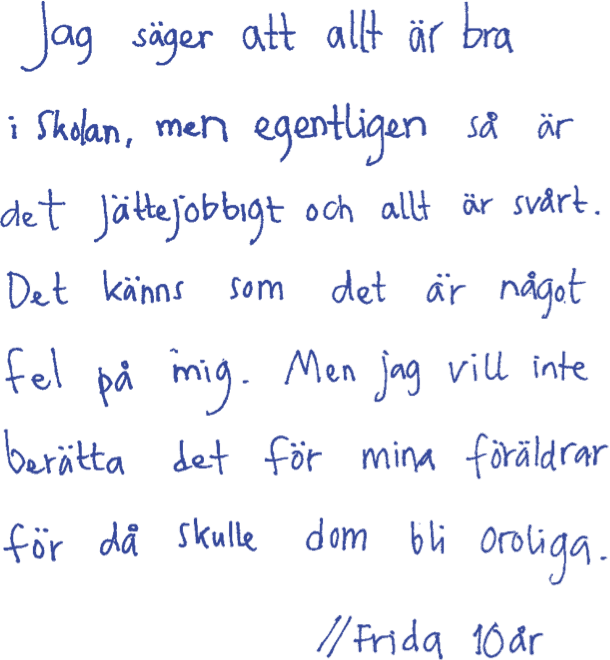 Jag säger att allt är bra
i skolan, men egentligen så är
det jättejobbigt och allt är svårt.
Det känns som det är något
fel på mig. Men jag vill inte
berätta det för mina föräldrar
för då skulle dom bli oroliga.
//Frida 10 år